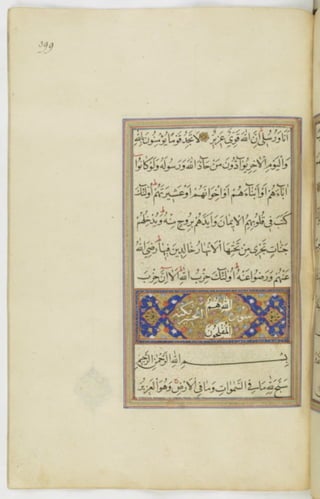 399
انا ورسلی ان الله قوی عزیز لا تجد قوما یؤمنون بالله
والیوم الاخر یوادون من حاد الله ورسوله ولو کانوا
اباءهم او ابناءهم او اخوانهم او عشیرتهم اولئک
کتب فی قلوبهم الایمان وایدهم بروح منه ویدخلهم
جنات تجری من تحتها الانهار خالدین فیها رضی الله
عنهم ورضوا عنه اولئک حزب الله الا ان حزب
الله هم
سورة الحشر
المفلحون
بسم الله الرحمن الرحیم
سبح لله ما فی السموات وما فی الارض وهو العزیز